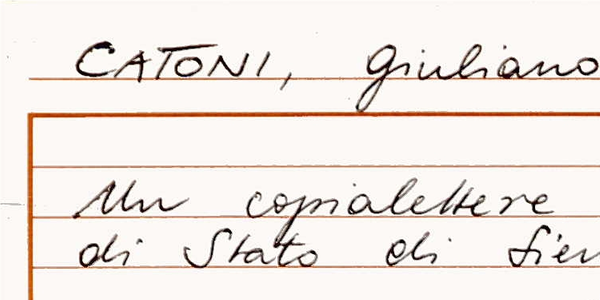 CATONI, Giuliano
Un copialettere
di Stato di Sien